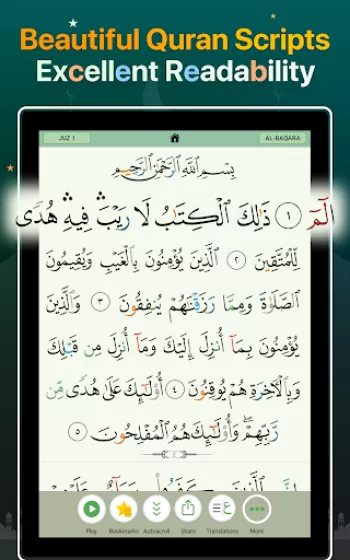 Beautiful Quran Scripts
Excellent Readability
JUZ 1
AL-BAQARA
بِسْمِ اللَّهِ الرَّحْمَٰنِ الرَّحِيمِ
الٓمٓ ١ ذَٰلِكَ الْكِتَابُ لَا رَيْبَ ۛ فِيهِ ۛ هُدًى
لِّلْمُتَّقِينَ ٢ الَّذِينَ يُؤْمِنُونَ بِالْغَيْبِ وَيُقِيمُونَ
الصَّلَاةَ وَمِمَّا رَزَقْنَاهُمْ يُنفِقُونَ ٣ وَالَّذِينَ
يُؤْمِنُونَ بِمَا أُنزِلَ إِلَيْكَ وَمَا أُنزِلَ مِن قَبْلِكَ
وَبِالْآخِرَةِ هُمْ يُوقِنُونَ ٤ أُولَٰئِكَ عَلَىٰ هُدًى مِّن
رَّبِّهِمْ ۖ وَأُولَٰئِكَ هُمُ الْمُفْلِحُونَ ٥
2
Play
Bookmarks
Autoscroll
Share
Translations
More